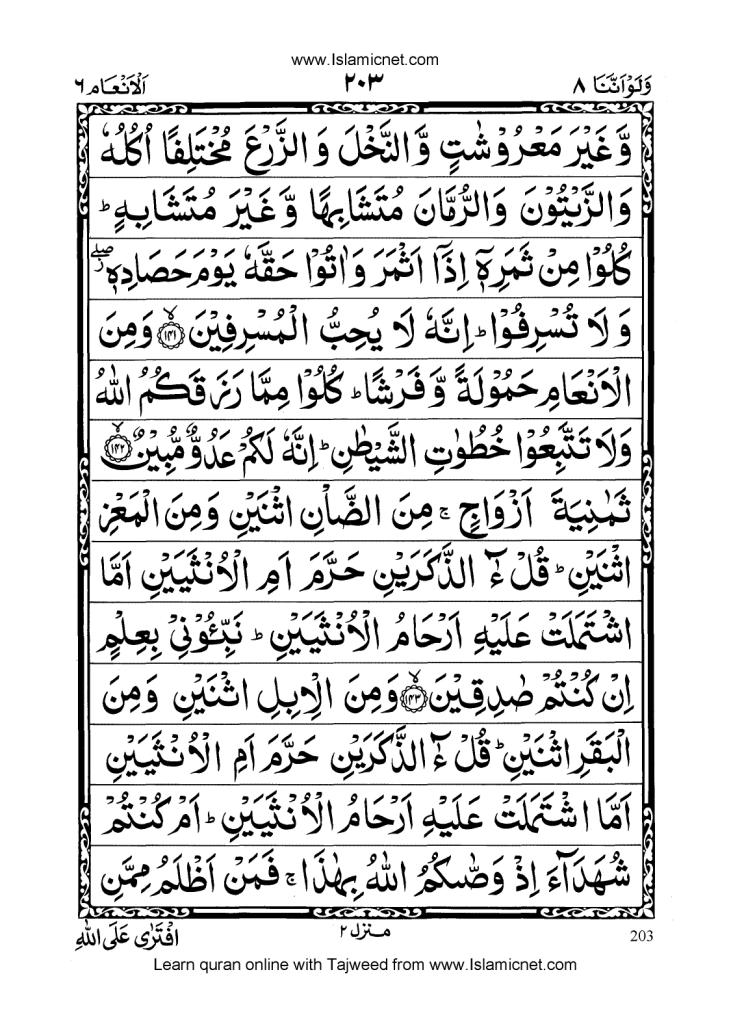 www.Islamicnet.com
وَلَوْاَنَّنَا ٨
٢٠٣
اَلْاَنْعَام ٦
وَّغَيْرَ مَعْرُوْشٰتٍ وَّالنَّخْلَ وَالزَّرْعَ مُخْتَلِفًا اُكُلُهٗ
وَالزَّيْتُوْنَ وَالرُّمَّانَ مُتَشَابِهًا وَّغَيْرَ مُتَشَابِهٍ ؕ
كُلُوْا مِنْ ثَمَرِهٖۤ اِذَاۤ اَثْمَرَ وَاٰتُوْا حَقَّهٗ يَوْمَ حَصَادِهٖ ۖز
وَلَا تُسْرِفُوْا ؕ اِنَّهٗ لَا يُحِبُّ الْمُسْرِفِيْنَ ﴿١٤١﴾ۙ وَمِنَ
الْاَنْعَامِ حَمُوْلَةً وَّفَرْشًا ؕ كُلُوْا مِمَّا رَزَقَكُمُ اللّٰهُ
وَلَا تَتَّبِعُوْا خُطُوٰتِ الشَّيْطٰنِ ؕ اِنَّهٗ لَكُمْ عَدُوٌّ مُّبِيْنٌ ﴿١٤٢﴾ۙ
ثَمٰنِيَةَ اَزْوَاجٍ ۚ مِنَ الضَّاْنِ اثْنَيْنِ وَمِنَ الْمَعْزِ
اثْنَيْنِ ؕ قُلْ ءٰٓالذَّكَرَيْنِ حَرَّمَ اَمِ الْاُنْثَيَيْنِ اَمَّا
اشْتَمَلَتْ عَلَيْهِ اَرْحَامُ الْاُنْثَيَيْنِ ؕ نَبِّـُٔوْنِيْ بِعِلْمٍ
اِنْ كُنْتُمْ صٰدِقِيْنَ ﴿١٤٣﴾ۙ وَمِنَ الْاِبِلِ اثْنَيْنِ وَمِنَ
الْبَقَرِ اثْنَيْنِ ؕ قُلْ ءٰٓالذَّكَرَيْنِ حَرَّمَ اَمِ الْاُنْثَيَيْنِ
اَمَّا اشْتَمَلَتْ عَلَيْهِ اَرْحَامُ الْاُنْثَيَيْنِ ؕ اَمْ كُنْتُمْ
شُهَدَآءَ اِذْ وَصّٰىكُمُ اللّٰهُ بِهٰذَا ۚ فَمَنْ اَظْلَمُ مِمَّنِ
203
منزل ٢
افْتَرٰى عَلَى اللّٰهِ
Learn quran online with Tajweed from www.Islamicnet.com